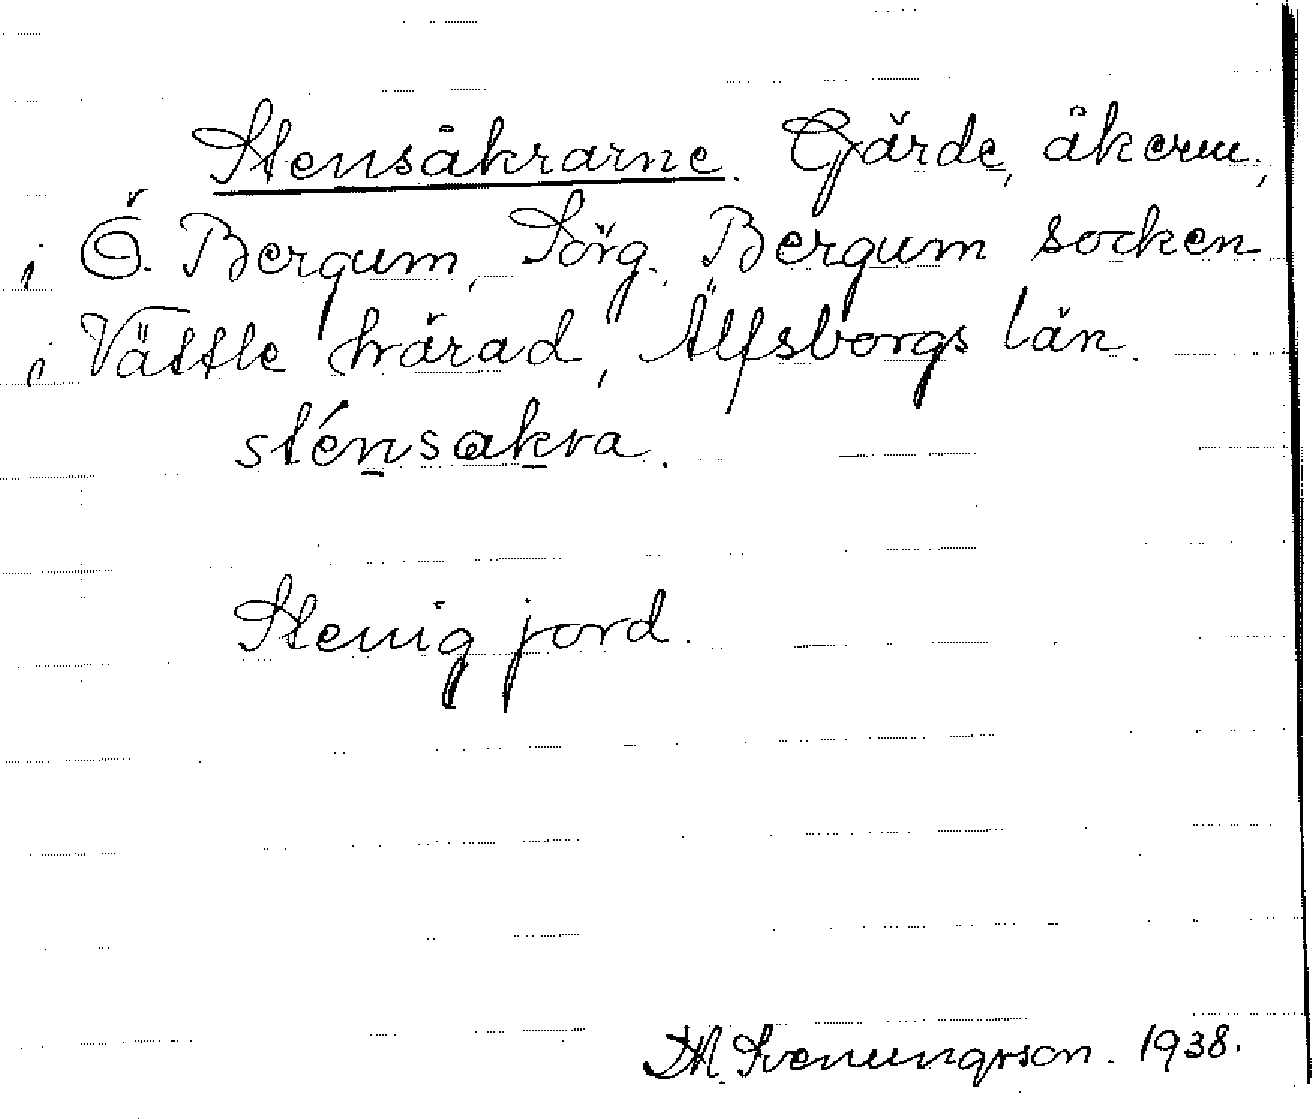 Stensåkrarne. Gärde, åkern,
i Ö. Bergum, Sörg. Bergum socken
i Vättle härad, Älfsborgs län.
sténsakra.
Stenig jord.
Th. Svenungsson. 1938.